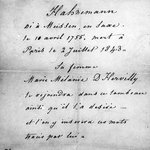 Hahnemann
né à Meissen, en Saxe
le 10 avril 1755, mort à
Paris le 2 juillet 1843.
Sa femme
Marie Mélanie D'Hervilly
le rejoindra dans ce tombeau
ainsi qu'il l'a désiré
et l'on y inscrira ces mots
tracés par lui.